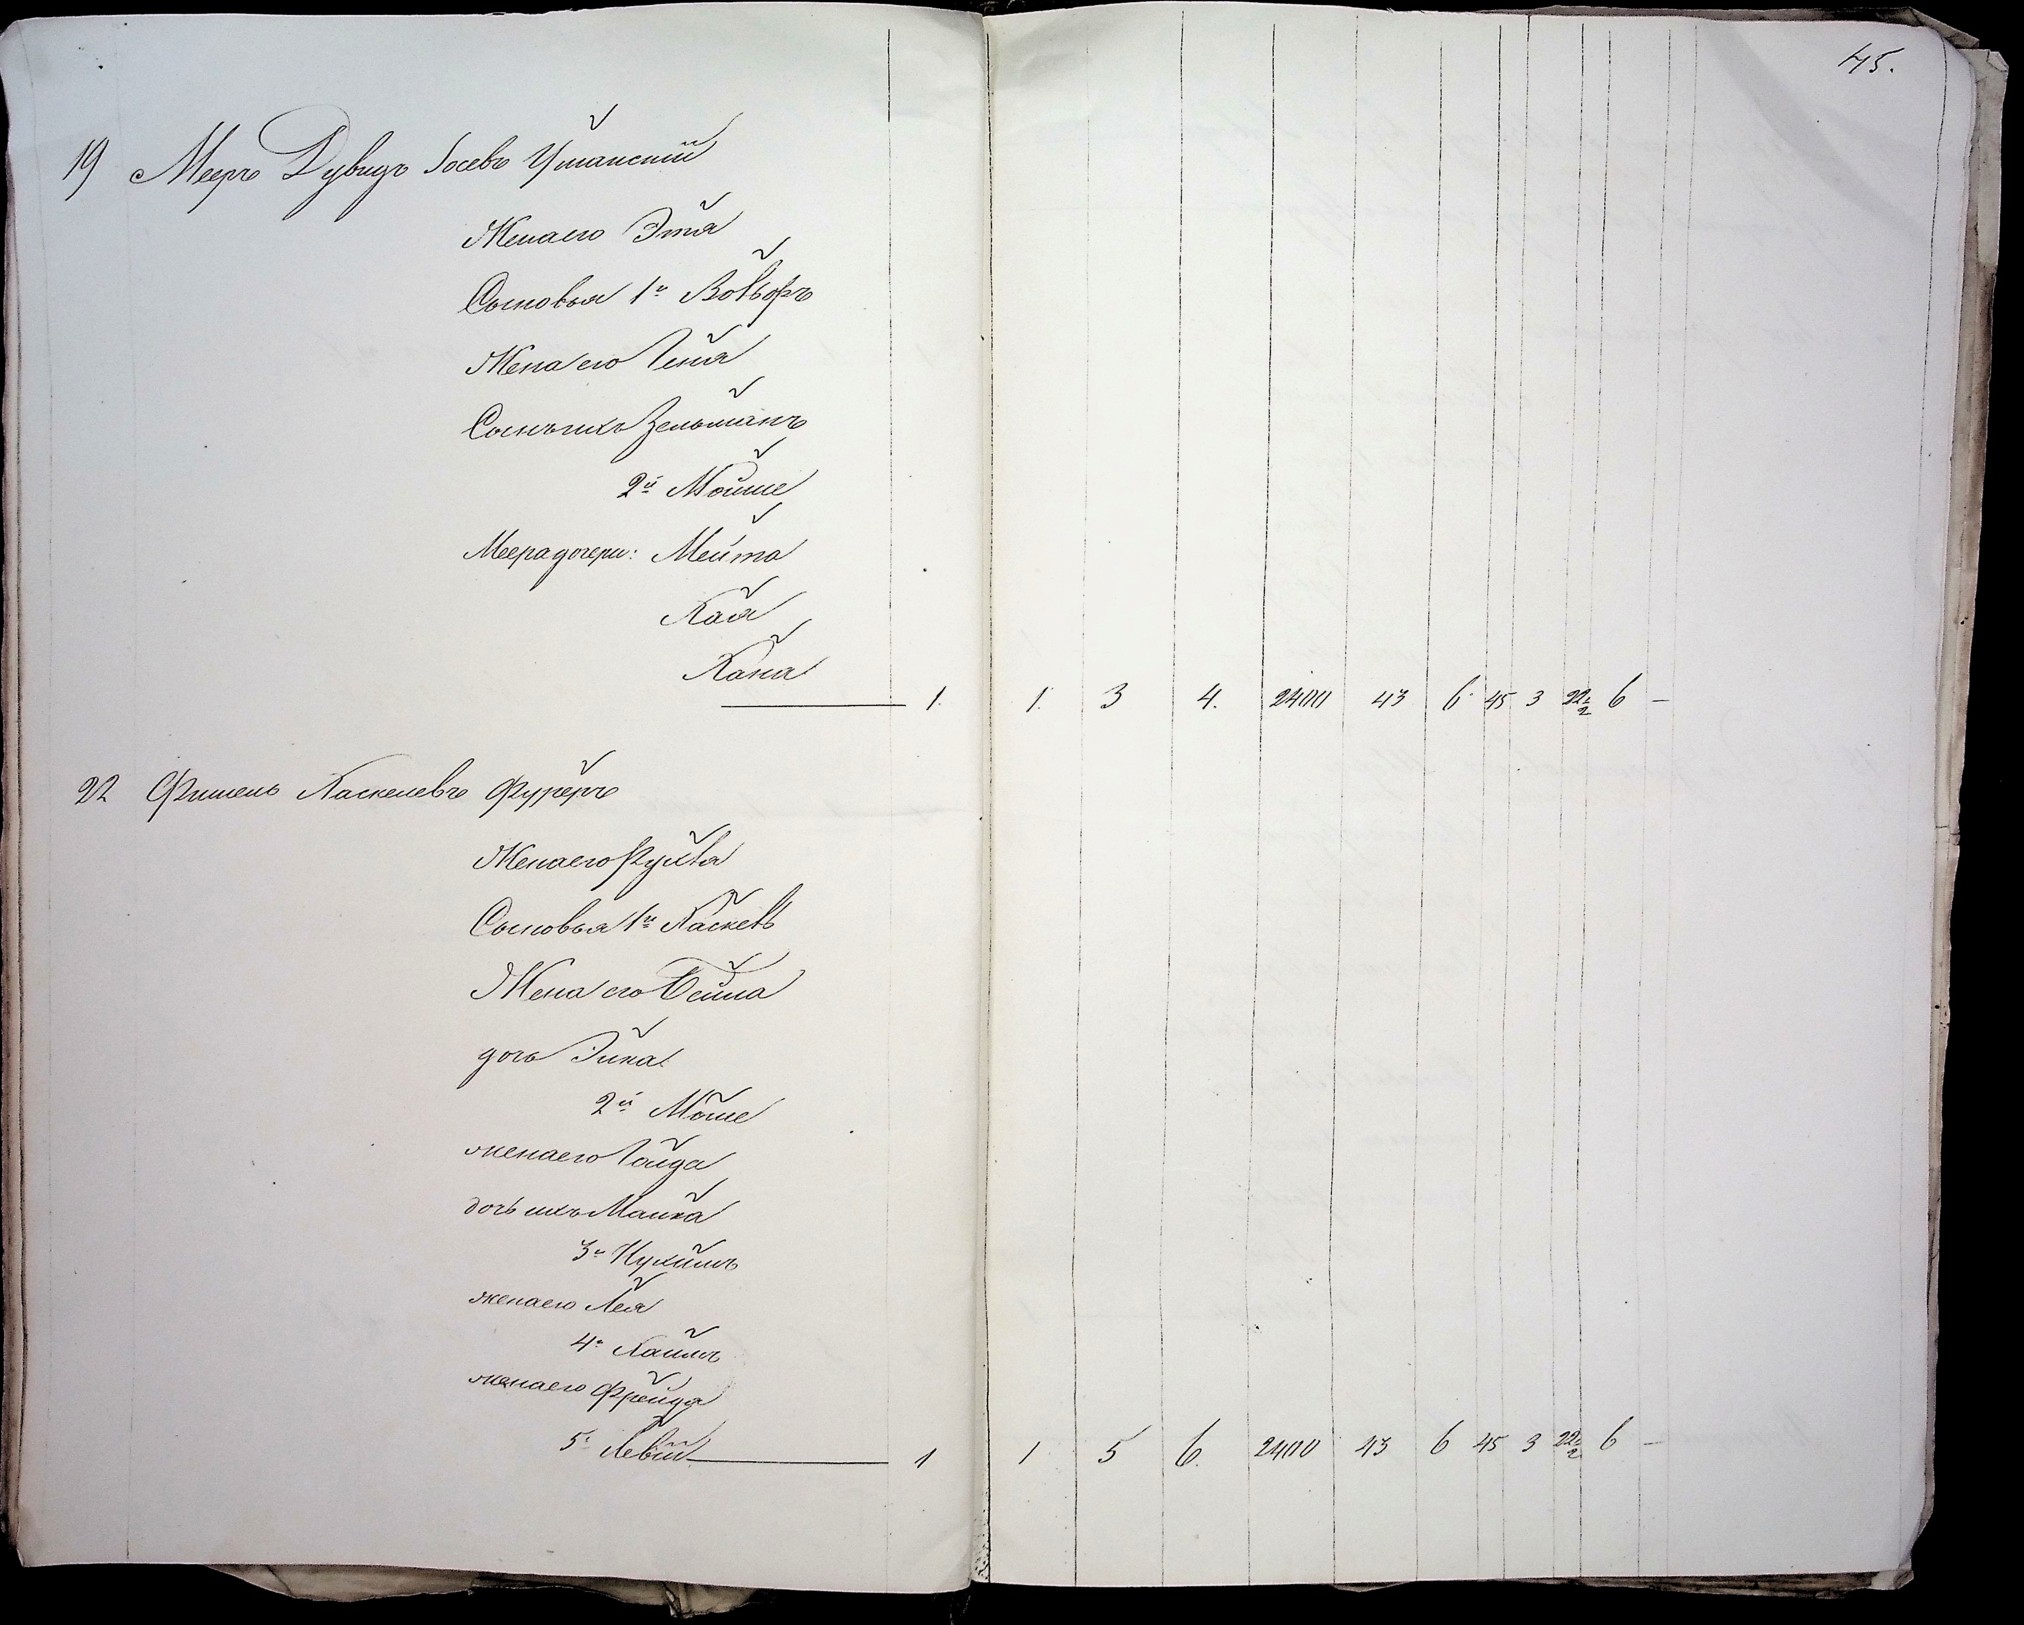 45.
19 Мееръ Дувидъ Iосевъ Уманскiй
Жена его Этя
Сыновья 1й Вольфъ
Жена его Геня
Сынъ ихъ Зельманъ
2й Мойше
Меера дочери: Мейта
Хая
Хана
1. 1. 3 4. 2400 43 6 45 3 22½ 6 —
22 Фишель Хаскелевъ Фуреръ
Жена его Рухля
Сыновья 1й Хаскель
Жена его Бейла
дочь Эйка
2й Моше
жена его Голда
дочь ихъ Малка
3й Нухимъ
жена его Лея
4й Хаимъ
жена его Фрейда
5й Левiй
1 1 5 6. 2400 43 6 45 3 22½ 6 —